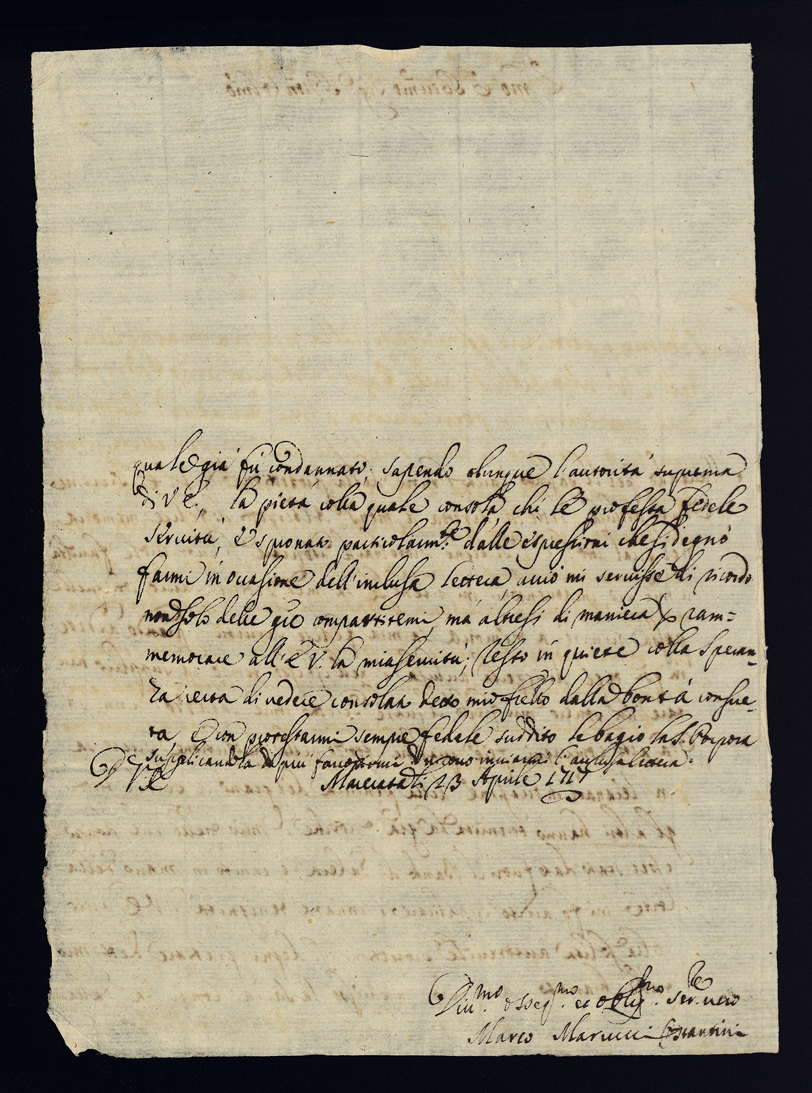 quale già fù condannato. Sapendo dunque l'autorità suprema
di V E, la pietà colla quale consola chi le professa fedele
servitù, e spronato particolarm.te dalle espressioni che si degnò
farmi in ocasione dell'inclusa lettera, acciò mi servisse di ricordo
non solo delle già compartitemi, mà altresi di maniera p ram=
memorare all'E V. la mia servitù; Resto in quiete colla speran=
za certa di vedere consolato detto mio figlio dalla bontà consue=
ta, e con protestarmi sempre fedele suddito le bagio la S. Porpora
supplicandola di più favorirmi di nuovo inviarmi l'acclusa lettera.
D V E Macerata li 23 Aprile 1717
Div.mo osseq.mo et oblig.mo ser.re vero
Marco Marucci Costantini